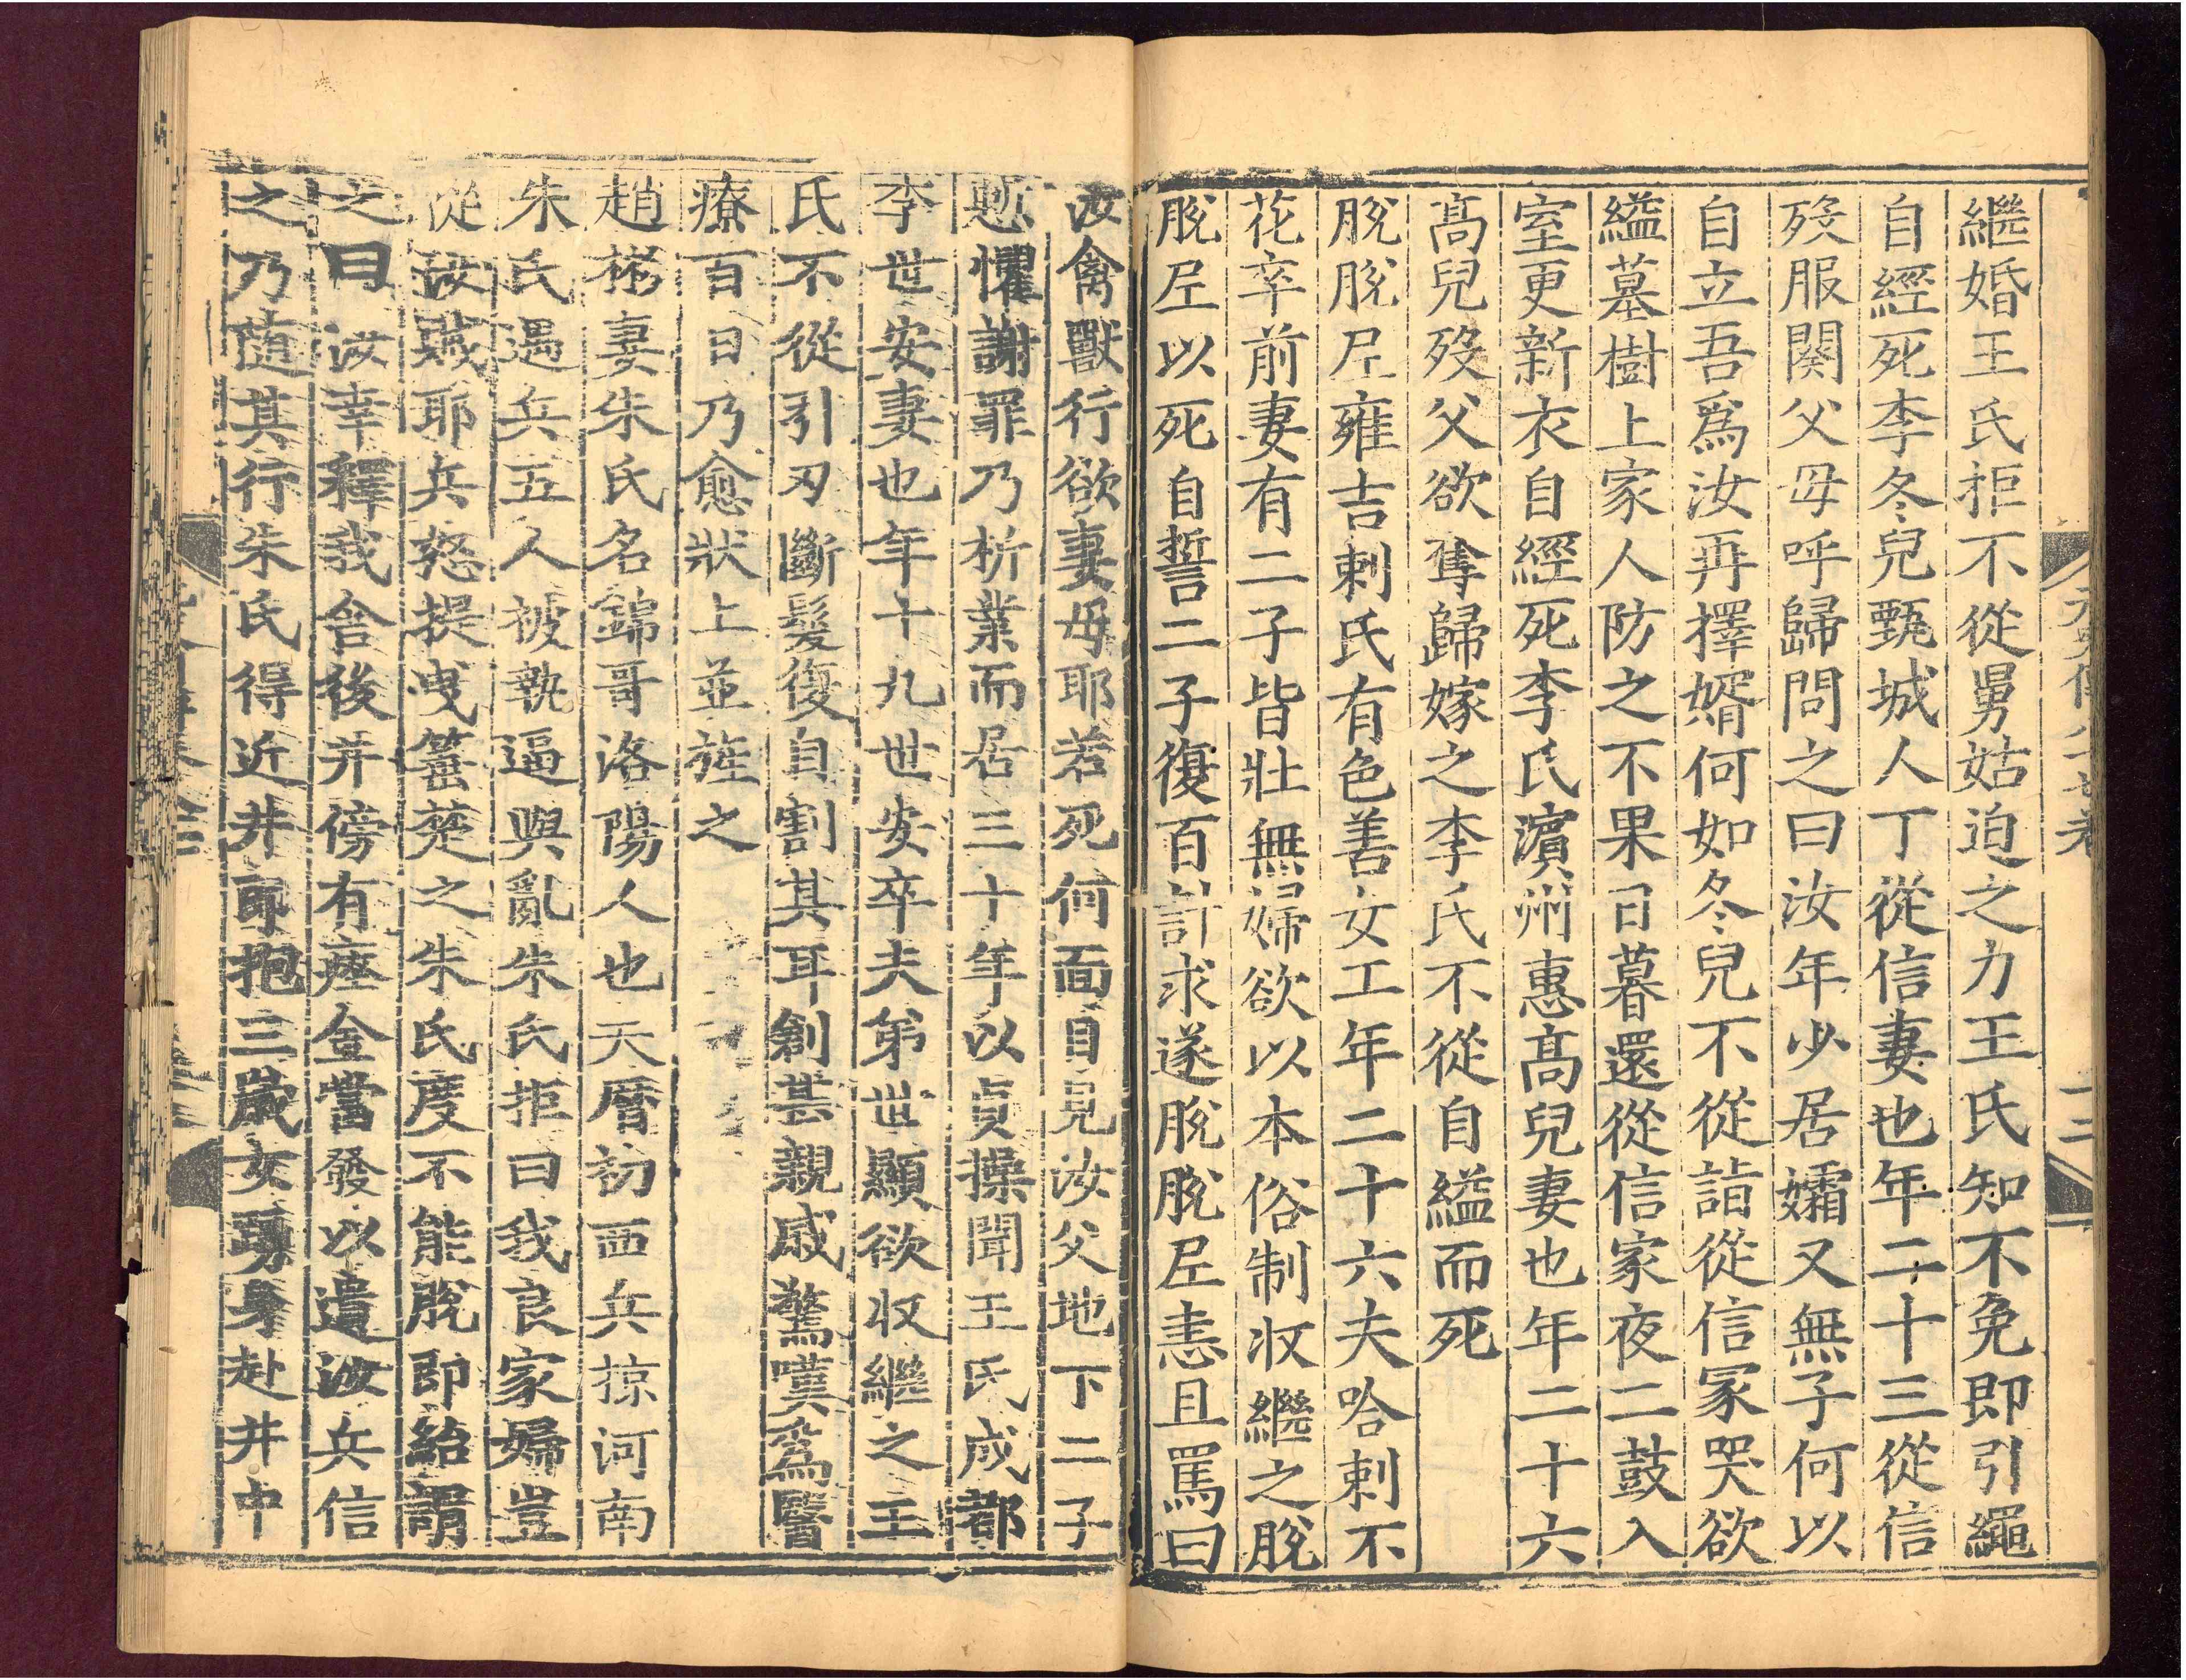 繼婚王氏拒不從舅姑迫之力王氏知不免即引繩
自經死李冬兒甄城人丁從信妻也年二十三從信
歿服闋父母呼歸問之曰汝年少居孀又無子何以
自立吾爲汝再擇婿何如冬兒不從詣從信冢哭欲
縊墓樹上家人防之不果日暮還從信家夜二鼓入
室更新衣自經死李氏濵州惠髙兒妻也年二十六
髙兒歿父欲奪歸嫁之李氏不從自縊而死
脫脫尼雍吉剌氏有色善女工年二十六夫哈剌不
花卒前妻有二子皆壯無婦欲以本俗制収繼之脫
脫尼以死自誓二子復百計求遂脫脫尼恚且罵曰
汝禽獸行欲妻母耶若死何面目見汝父地下二子
慙懼謝罪乃析業而居三十年以貞操聞王氏成都
李世安妻也年十九世安卒夫弟世顯欲収繼之王
氏不從引刃斷髮復自割其耳創甚親戚驚嘆爲醫
療百日乃愈狀上並旌之
趙彬妻朱氏名錦哥洛陽人也天曆初西兵掠河南
朱氏遇兵五人被執逼與亂朱氏拒曰我良家婦豈
從汝賊耶兵怒提曳箠楚之朱氏度不能脫即紿謂
之曰汝幸釋我舍後井傍有瘞金當發以遺汝兵信
之乃隨其行朱氏得近井即抱三歲女踴身赴井中